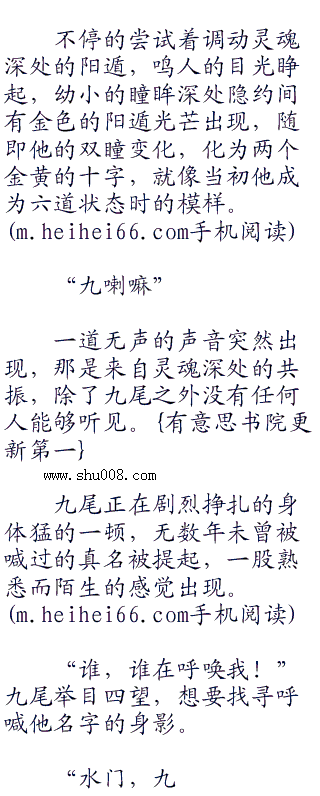 不停的尝试着调动灵魂
深处的阳遁，鸣人的目光睁
起，幼小的瞳眸深处隐约间
有金色的阳遁光芒出现，随
即他的双瞳变化，化为两个
金黄的十字，就像当初他成
为六道状态时的模样。
(m.heihei66.com手机阅读)
“九喇嘛”
一道无声的声音突然出
现，那是来自灵魂深处的共
振，除了九尾之外没有任何
人能够听见。{有意思书院更
新第一}
www.shu008.com
九尾正在剧烈挣扎的身
体猛的一顿，无数年未曾被
喊过的真名被提起，一股熟
悉而陌生的感觉出现。
(m.heihei66.com手机阅读)
“谁，谁在呼唤我！”
九尾举目四望，想要找寻呼
喊他名字的身影。
“水门，九